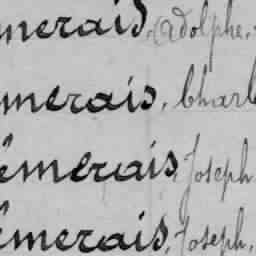 merais, Adolphe,
merais, Charl
émerais, Joseph
émerais, Joseph,